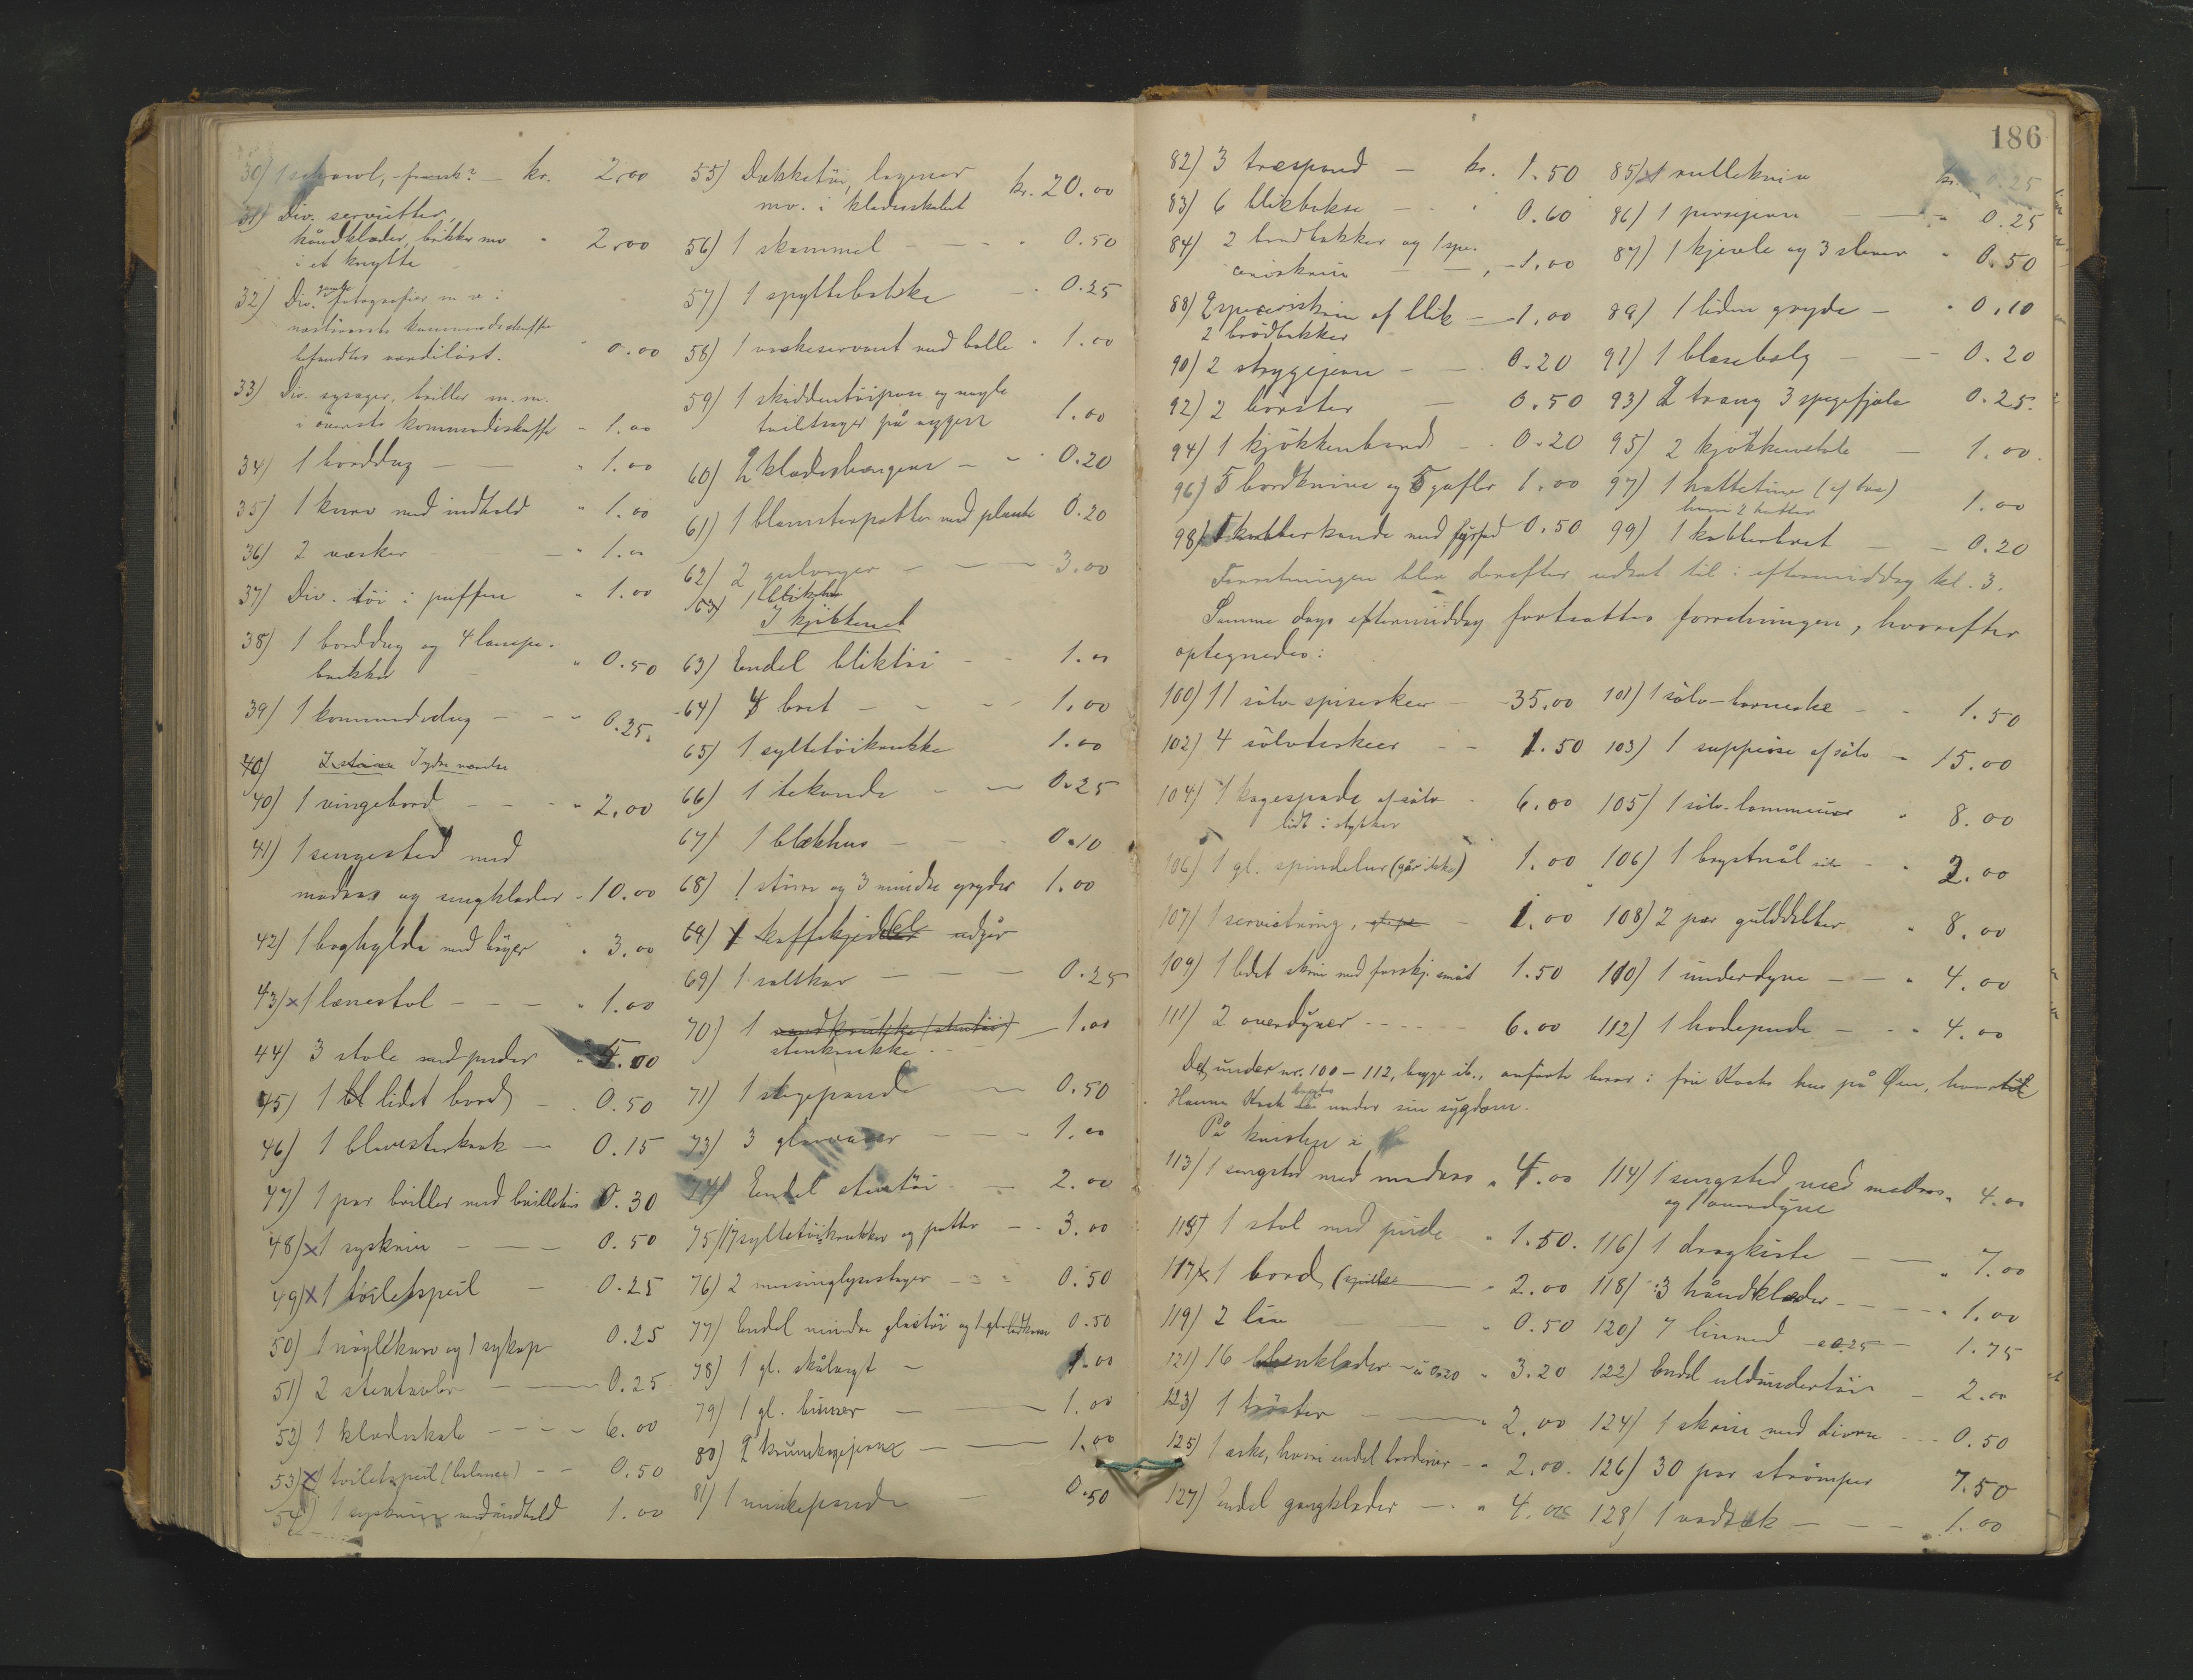 30) 1 schawl, fransk? – kr. 2,00
31) Div. servietter,
håndklæder, m.v. " 2,00
i et knytte
32) Div. gamle fotografier m. v. i
nestøverste kommodeskuffe
befandtes værdiløst. " 0.00
33) Div. sysager, briller m.m.
i øverste kommodeskuffe – 1.00
34) 1 borddug – – " 1.00
35) 1 kurv med indhold " 1.00
36) 2 væsker – " 1.00
37) Div. tøi i puffen " 1.00
38) 1 borddug og 4 lampe-
brikker " 0.50
39) 1 kommodedug – – " 0.25.
40) I ydre værelse
40) 1 vingebord – – " 2,00
41) 1 sengested med
madras og sengklæder – 10.00
42) 1 boghylde med bøger " 3.00
43) x 1 lænestol – – – " 1.00
44) 3 stole med puder " 5.00
45) 1 lidet bord – . 0.50
46) 1 blomsterkrak – 0.15
47) 1 par briller med brillehus 0.30
48) x 1 syskrin – – – 0.50
49) x 1 toiletspeil – 0.25
50) 1 nøglekurv og 1 sykop 0.25
51) 2 stentavler – – 0.25
52) 1 klædeskab – – – – 6.00
53) x 1 toiletspeil (balance) – – 0.50
54) 1 syskrin med indhold 1.00
55) Dækketøi, lagener
mv. i klædeskabet kr. 20.00
56) 1 skammel – – – " 0.50
57) 1 spyttebakke – . 0.25
58) 1 vaskeservant med bolle . 1.00
59) 1 skiddentøipose og nogle
toiletsager på 1.00
60) 2 klædeshængere – – . 0.20
61) 1 blomsterpotte med plante 0.20
62) 2 – – – 3.00
63) 1
I kjøkkenet
63) Endel bliktøi – – 1.00
64) 4 bret – – – – 1.00
65) 1 syltetøikrukke 1.00
66) 1 tekande – – 0.25
67) 1 blækhus – – . 0.10
68) 1 større og 3 mindre gryder 1.00
69) 1 kaffekjeddel udgår
69) 1 saltkar – – – 0.25
70) 1 vandkrukke (stentøi) – 1.00
stenkrukke
71) 1 stegepande – 0.50
73) 3 glasvaser – – – 1.00
74) Endel stentøi – 2.00
75) 17 syltetøikrukker og potter – – 3.00
76) 2 messinglysestager – – – 0.50
77) Endel mindre glastøi og 1 0.50
78) 1 gl. skålvegt – 1.00
79) 1 gl. bismer – – 1.00
80) 2 krumkagejern – – 1.00
81) 1 – 0.50
186
82) 3 træspand – kr. 1.50 85) x 1 rullekniv kr. 0.25
83) 6 blikbokse – . " 0.60 86) 1 – – " 0.25
84) 2 brødbakker og 1 spe-
ceriskrin – – , – 1.00 87) 1 kjevle og 3 slever " 0.50
88) 2 speceriskrin af blik – 1.00 89) 1 liden gryde – " 0.10
2 brødbakker
90) 2 strygejern – – 0.20 91) 1 blæsebelg – – 0.20
92) 2 børster – 0.50 93) 2 traug 3 spegefjæle 0.25.
94) 1 kjøkkenbord – . 0.20 95) 2 kjøkkenstole – 1.00.
96) 5 bordknive og 5 gafler 1.00 97) 1 hattetine (af træ)
hvori 2 hatter 1.00
98) 1 kobberkande med fyrfad 0.50 99) 1 kobberbret – – 0.20
Forretningen blev derefter udsat til i eftermiddag kl. 3.
Samme dags eftermiddag fortsattes forretningen, hvorefter
optegnedes:
100) 11 sølv spiseskeer – 35.00 101) 1 sølv – barneske – – 1.50
102) 4 sølvteskeer – – 1.50 103) 1 suppeøse af sølv – 15.00
104) 1 kagespade af sølv . 6.00 105) 1 sølv-lommeur " 8.00
lidt i stykker
106) 1 gl. spindelur (går ikke) 1.00 106) 1 brystnål sølv – " 2.00
107) 1 serviettring, – 1.00 108) 2 par gulddobber " 8.00
109) 1 lidet skrin med forskj. småt 1.50 110) 1 underdyne – – " 4.00
111) 2 overdyner – – – – – 6.00 112) 1 hodepude – – " 4.00
Det under nr. 100 – 112, begge ib., anførte beror i fru Kochs hus på Øen, hvortil
Hanna Koch bragtes under sin sygdom.
På kvisten i
113) 1 sengsted med madras " 4.00 114) 1 sengsted med madras " 4.00
og 1 overdyne
115) 1 stol med pude " 1.50. 116) 1 dragkiste – – " 7.00
117) x 1 bord – " 2.00 118) 3 håndklæder – – – – " 1.00
119) 2 – – " 0.50 120) 7 linned – a 0.25 – 1.75
121) 16 benklæder – a 0.20 " 3.20 122) Endel uldundertøi – 2.00
123) 1 trøster – – " 2.00 124) 1 skrin med diverse – – – 0.50
125) 1 æske, hvori endel broderier – " 2.00. 126) 30 par strømper 7.50
127) Endel gangklæder – . " 4.00 128) 1 vadsæk – – – 1.00